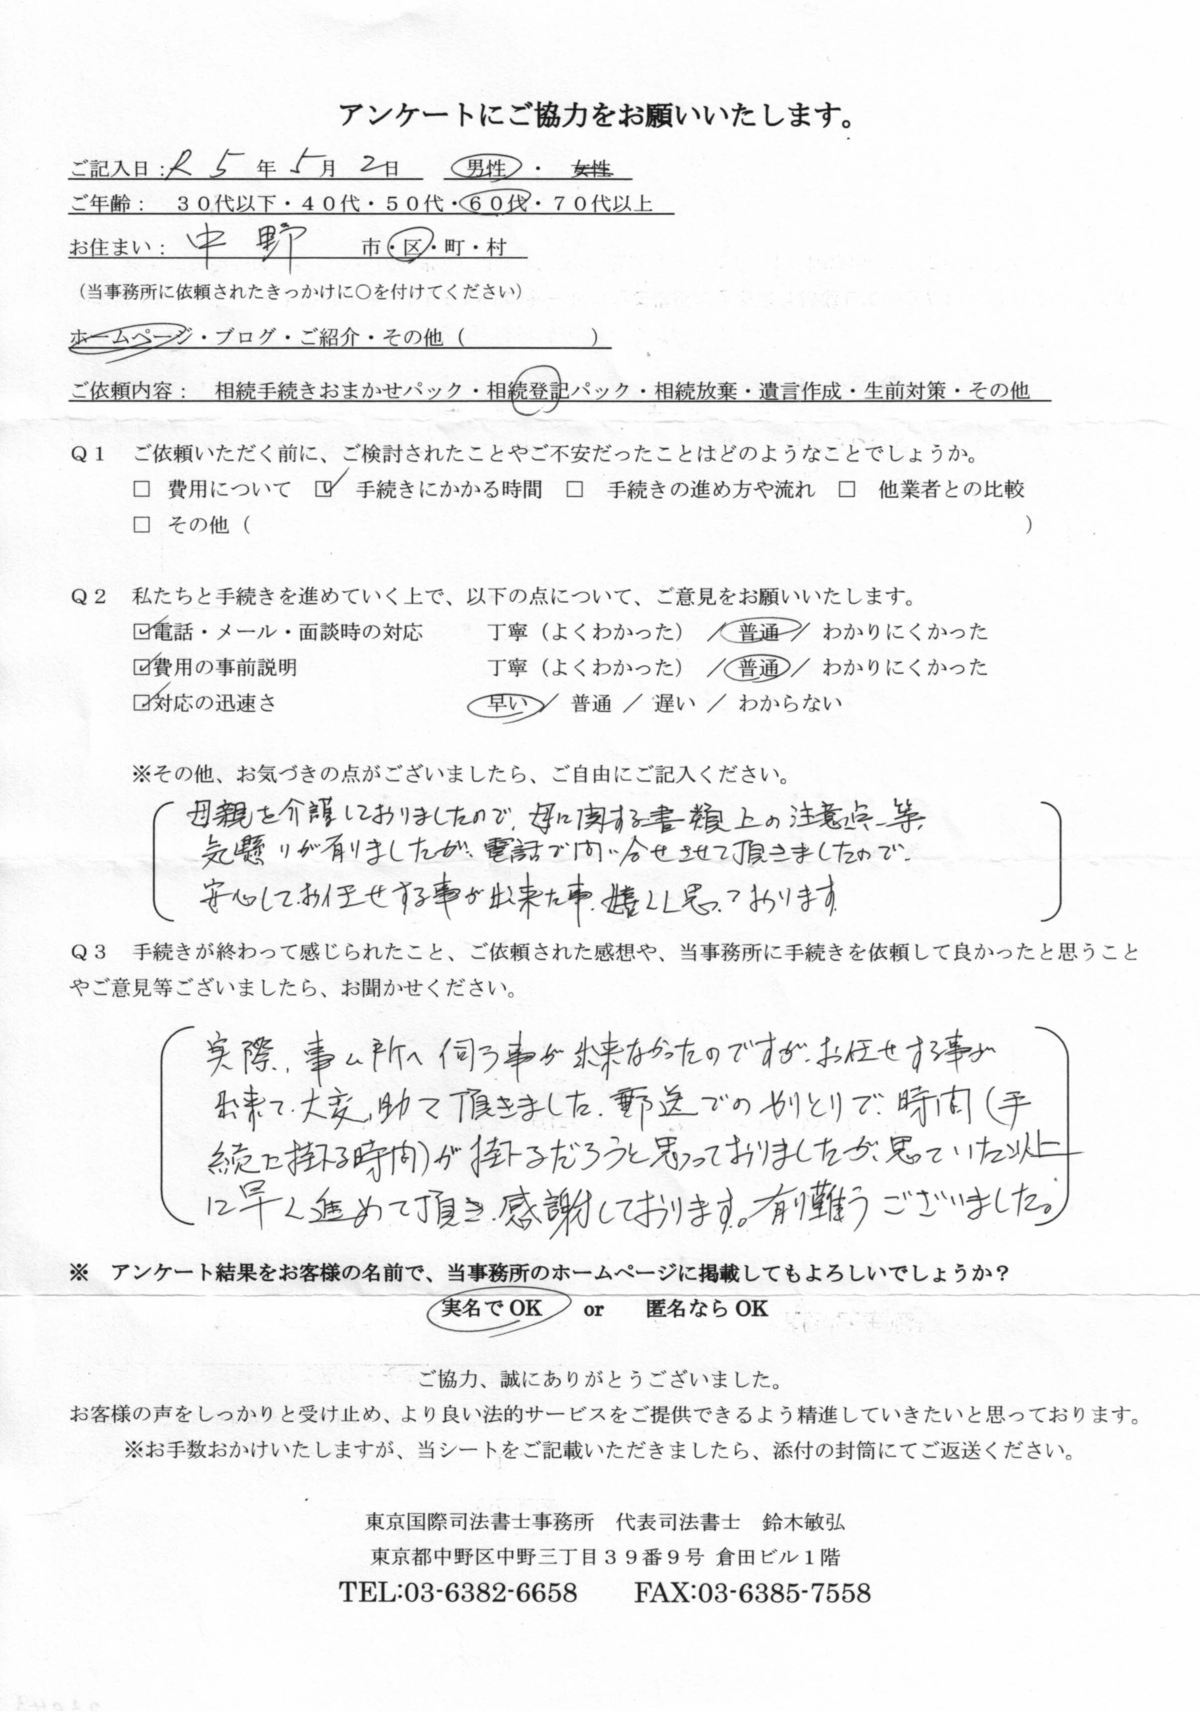 アンケートにご協力をお願いいたします。
ご記入日：R 5 年 5 月 2 日　男性 ・ 女性
ご年齢：　３０代以下・４０代・５０代・６０代・７０代以上
お住まい：　中野　市・区・町・村
（当事務所に依頼されたきっかけに○を付けてください）
ホームページ・ブログ・ご紹介・その他（　　　　　　）
ご依頼内容：　相続手続きおまかせパック・相続登記パック・相続放棄・遺言作成・生前対策・その他
Ｑ１　ご依頼いただく前に、ご検討されたことやご不安だったことはどのようなことでしょうか。
□　費用について　☑　手続きにかかる時間　□　手続きの進め方や流れ　□　他業者との比較
□　その他（　　　　　　　　　　　　　　　　　　　　）
Ｑ２　私たちと手続きを進めていく上で、以下の点について、ご意見をお願いいたします。
☑電話・メール・面談時の対応　　　丁寧（よくわかった）　／　普通　／　わかりにくかった
☑費用の事前説明　　　丁寧（よくわかった）　／　普通　／　わかりにくかった
☑対応の迅速さ　　　早い　／　普通　／　遅い　／　わからない
※その他、お気づきの点がございましたら、ご自由にご記入ください。
母親を介護しておりましたので、母に関する書類上の注意点等、
気懸りが有りましたが、電話で問い合せさせて頂きましたので、
安心してお任せする事が出来た事、嬉しく思っております。
Ｑ３　手続きが終わって感じられたこと、ご依頼された感想や、当事務所に手続きを依頼して良かったと思うこと
やご意見等ございましたら、お聞かせください。
実際、事ム所へ伺う事が出来なかったのですが、お任せする事が
出来て、大変助て頂きました。郵送でのやりとりで、時間（手
続に掛る時間）が掛るだろうと思っておりましたが、思っていた以上
に早く進めて頂き、感謝しております。有り難うございました。
※　アンケート結果をお客様の名前で、当事務所のホームページに掲載してもよろしいでしょうか？
実名で OK　or　匿名なら OK
ご協力、誠にありがとうございました。
お客様の声をしっかりと受け止め、より良い法的サービスをご提供できるよう精進していきたいと思っております。
※お手数おかけいたしますが、当シートをご記載いただきましたら、添付の封筒にてご返送ください。
東京国際司法書士事務所　代表司法書士　鈴木敏弘
東京都中野区中野三丁目３９番９号 倉田ビル１階
TEL:03-6382-6658　　FAX:03-6385-7558